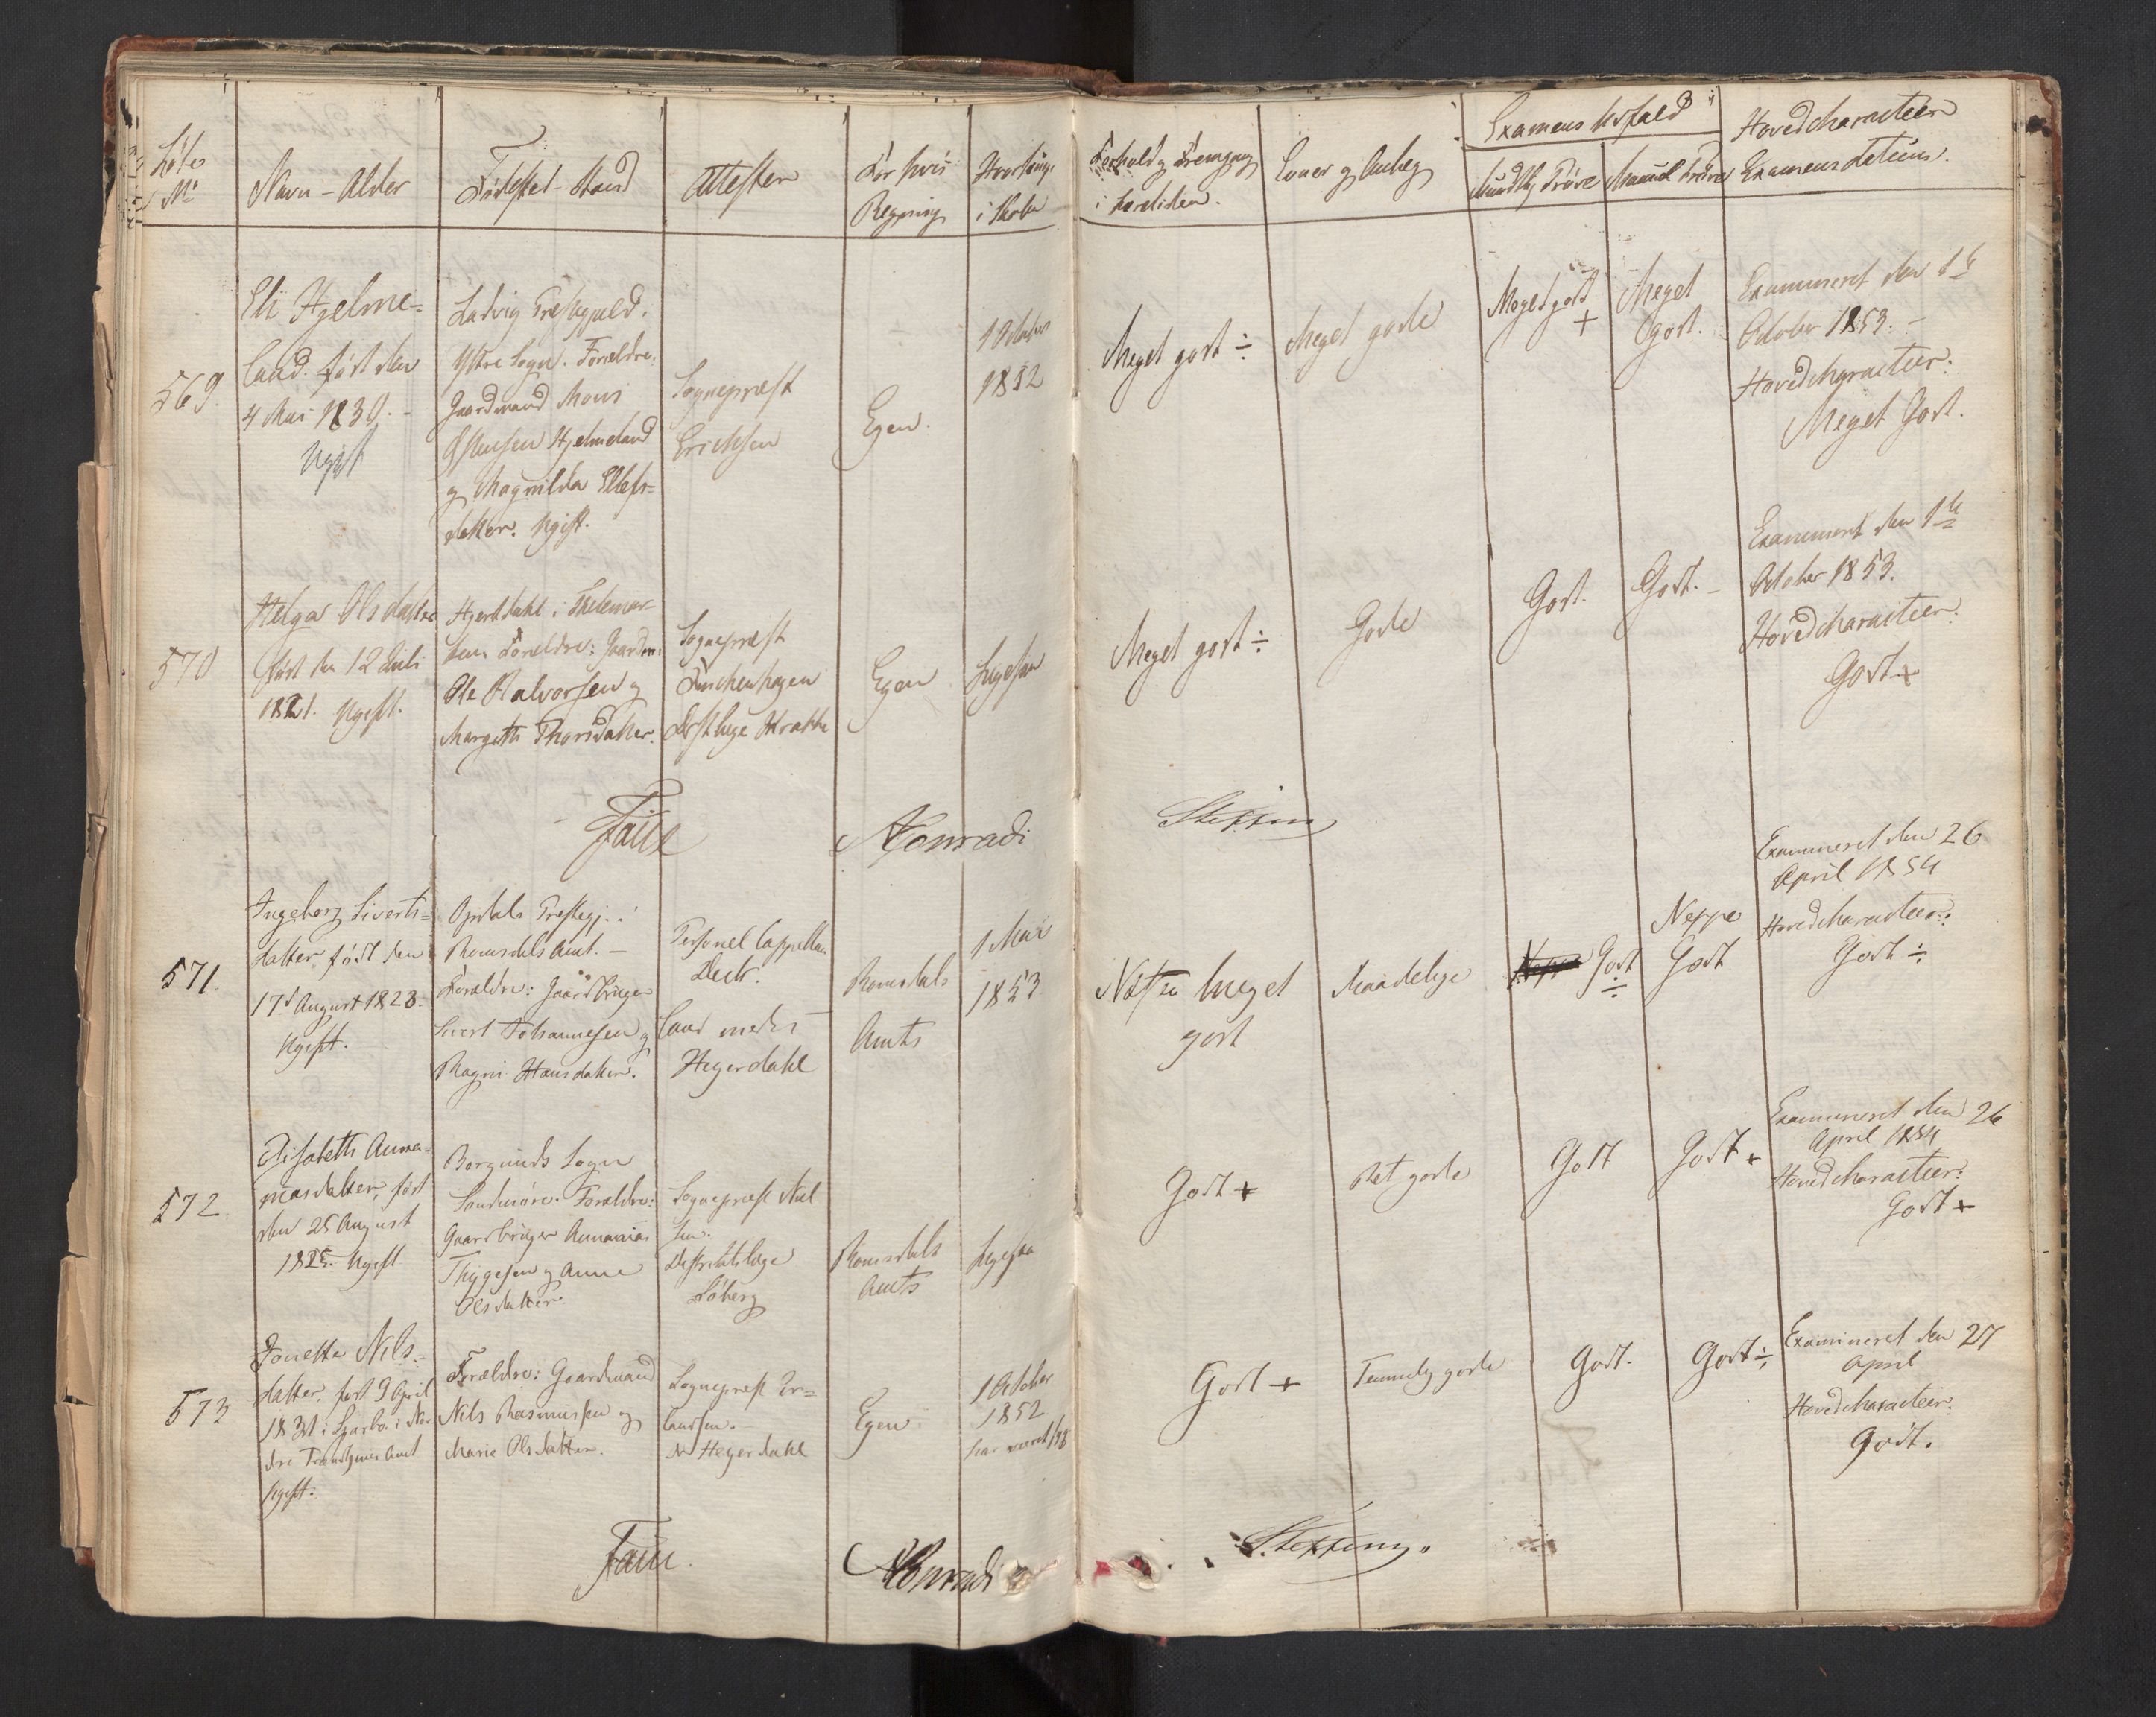 Löbe
No
Navn - Alder
Födested - Stand
Attester
For hvis
Regning
Hvor længe
i Skolen
Forhold og Fremgang
i Læretiden.
Evner og Anlæg
Examens Udfald
Mundtlig Pröve
Manuel Pröve
Hovedcharacteer
Examens Datum.
569.
Eli Hjelme-
land. født den
4 Mai 1830.
Ugift
Ladvig Præstegjeld.
Ytre Sogn. Forældre.
Gaardmand Mons
Hjelmeland
og Magnilda Ellefs-
datter. Ugift.
Sognepræst
Erichsen
Egen.
1 October
1852
Meget godt ÷
Meget gode
Meget godt
+
Meget
godt.
Examineret den 1ste
October 1853. -
Hovedcharacteer:
Meget Godt.
570
Helga Olsdatter
født den 12 Juli
1821. Ugift.
Hjertdahl i Thelemar-
ken. Forældre: Gaardm.
Ole Halvorsen og
Margith Thorsdatter.
Sognepræst
Finchenhagen
Krabbe
Egen
Ligesaa
Meget godt ÷
Gode
Godt.
Godt. -
Examineret den 1ste
October 1853.
Hovedcharacteer:
Godt +
Faye
Konradi
Steffens
571.
Ingeborg Siverts-
datter, født den
17de August 1823.
Ugift.
Opdals Præstegj.
Romsdals Amt. -
Forældre: Gaardbruger
Sivert Johannesen og
Ragni Hansdatter.
Personel Cappellan
Cand. med.
Heyerdahl
Romsdals
Amts
1 Mai
1853
Næsten meget
godt
Maadelige
Godt
÷
Neppe
Godt
Examineret den 26
April 1854
Hovedcharacteer:
Godt ÷
572
Elisabeth Anna-
niasdatter, født
den 25 August
1825. Ugift
Borgunds Sogn
Søndmöre. Forældre:
Gaardbruger Annanias
Thygesen og Anne
Olsdatter.
Sognepræst
Districtslæge
Löberg
Romsdals
Amts
Ligesaa
Godt +
Ret gode
Godt
Godt +
Examineret den 26
April 1854
Hovedcharacteer:
Godt +
573
Jonetta Nils-
datter, født 9 April
1831 i Sparbo i Nor-
dre Trondhjems Amt
Ugift.
Forældre: Gaardmand
Nils Rasmussen og
Marie Olsdatter.
Sognepræst Er-
landsen.
Heyerdahl
Egen
1 October
1852
har været
Godt +
Temmelig gode
Godt.
Godt ÷
Examineret den 27
April
Hovedcharacteer:
Godt.
Faye.
Konradi
Steffens